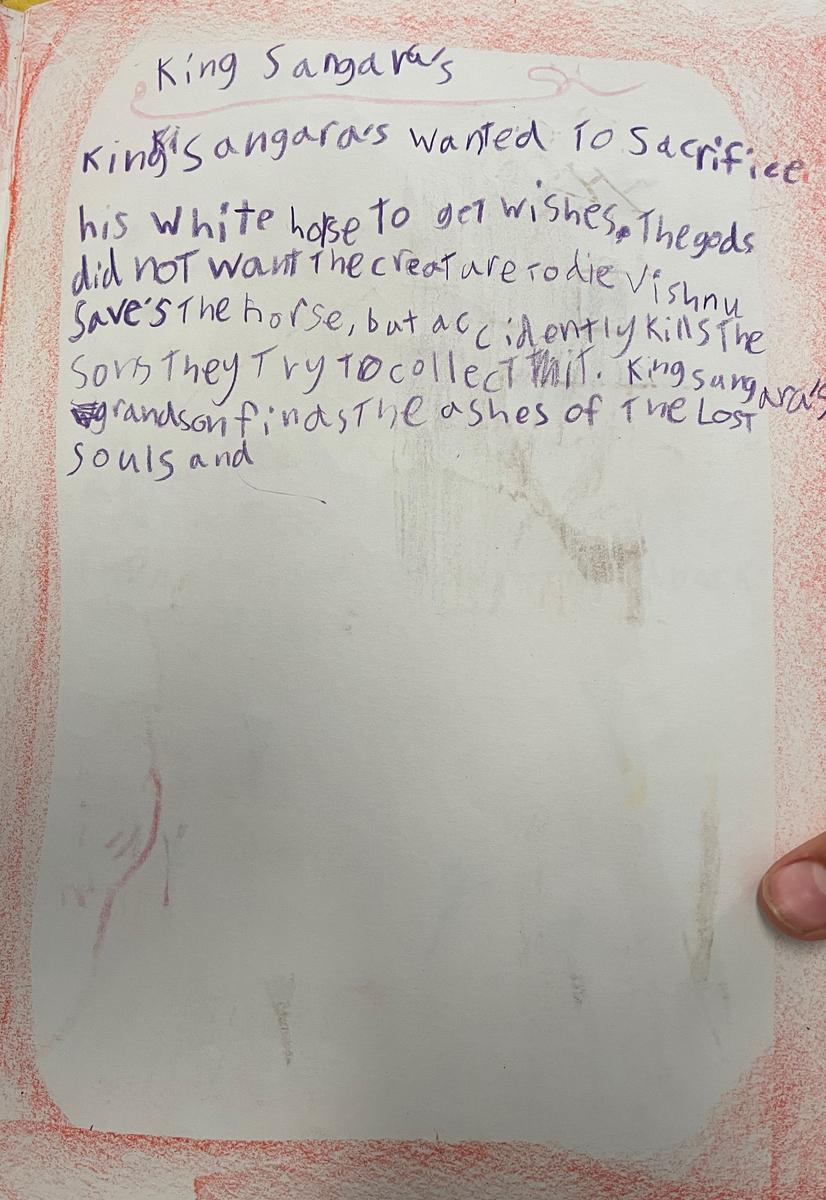 King Sangara's
King Sangara's wanted To Sacrifice
his white horse To get wishes. The gods
did not want The creature To die Vishnu
Save's The horse, but accidently kills The
Sons They Try To collect it. King sangara's
grandson finds The ashes of The Lost
souls and